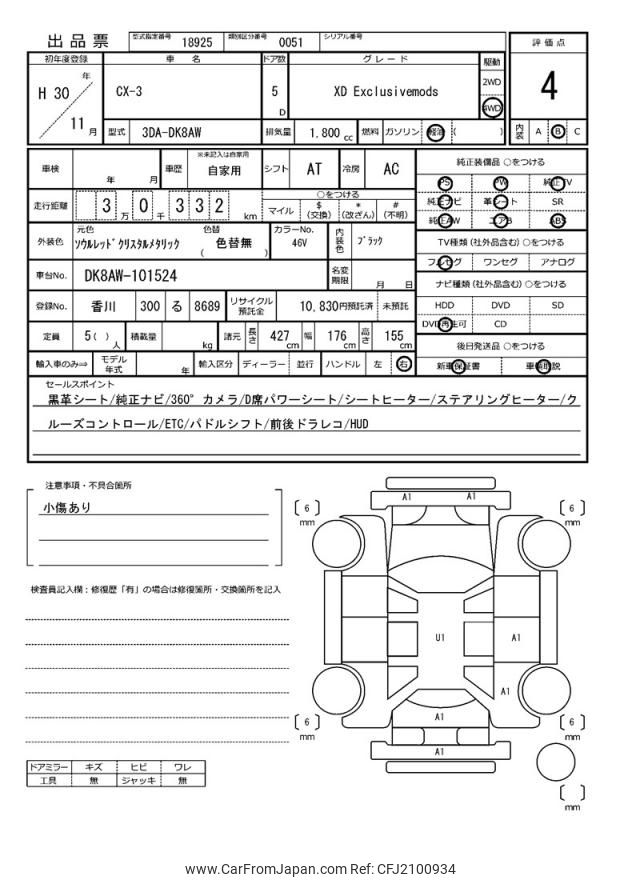 出品票 型式指定番号 18925 類別区分番号 0051 シリアル番号
初年度登録 車 名 ドア数 グレード 駆動 評価点
H 30 年 11 月 CX-3 5 D XD Exclusivemods 2WD 4WD 4
型式 3DA-DK8AW 排気量 1,800 cc 燃料 ガソリン 軽油 ( ) 内装 A B C
車検 年 月 車歴 ※未記入は自家用 自家用 シフト AT 冷房 AC 純正装備品 ○をつける
PS PW 純正TV
走行距離 3 万 0 千 3 3 2 km ○をつける 純正ナビ 革シート SR
マイル $ (交換) * (改ざん) # (不明) 純正AW エアB ABS
外装色 元色 ソウルレッドクリスタルメタリック 色替 ( 色替無 ) カラーNo. 46V 内装色 ブラック TV種類 (社外品含む) ○をつける
フルセグ ワンセグ アナログ
車台No. DK8AW-101524 名変期限 月 日 ナビ種類 (社外品含む) ○をつける
登録No. 香川 300 る 8689 リサイクル預託金 10,830円預託済 未預託 HDD DVD SD
DVD再生可 CD
定員 5( ) 人 積載量 kg 諸元 長さ 427 cm 幅 176 cm 高さ 155 cm 後日発送品 ○をつける
輸入車のみ⇒ モデル年式 年 輸入区分 ディーラー 並行 ハンドル 左 右 新車保証書 車輌取説
セールスポイント
黒革シート/純正ナビ/360°カメラ/D席パワーシート/シートヒーター/ステアリングヒーター/ク
ルーズコントロール/ETC/パドルシフト/前後ドラレコ/HUD
注意事項・不具合箇所
小傷あり
検査員記入欄:修復歴「有」の場合は修復箇所・交換箇所を記入
A1 A1
6 mm 6 mm
U1 A1
A1
A1
6 mm 6 mm
A1
mm
ドアミラー キズ ヒビ ワレ
工具 無 ジャッキ 無
www.CarFromJapan.com Ref: CFJ2100934